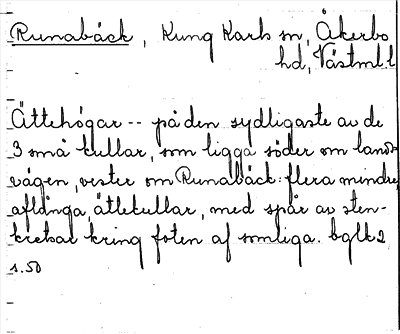 Runabäck, Kung Karls sn, Åkerbo
hd, Västml.l
Ättehögar -- på den sydligaste av de
3 små kullar, som ligga söder om lands-
vägen, vester om Runabäck: flera mindre,
aflånga ättekullar, med spår av sten-
kretsar kring foten af somliga. bglk 2
s. 50